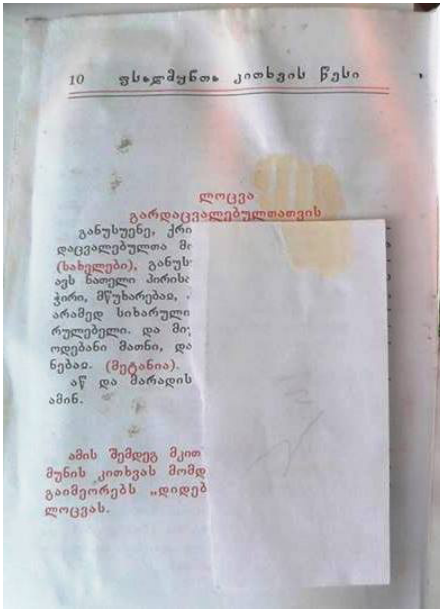 10 ფსალმუნთა კითხვის წესი
ლოცვა
გარდაცვალებულთათვის
განუსუენე,
დაცვალებულთა
(სახელები),
ავს ნათელი
ჭირი, მწუხარებაჲ,
არამედ
რულებელი. და
ოდებანი მათნი, და
ნებაჲ. (მეტანია).
აწ და მარადის
ამინ.
ამის შემდეგ
მუნის კითხვას
გაიმეორებს
ლოცვას.